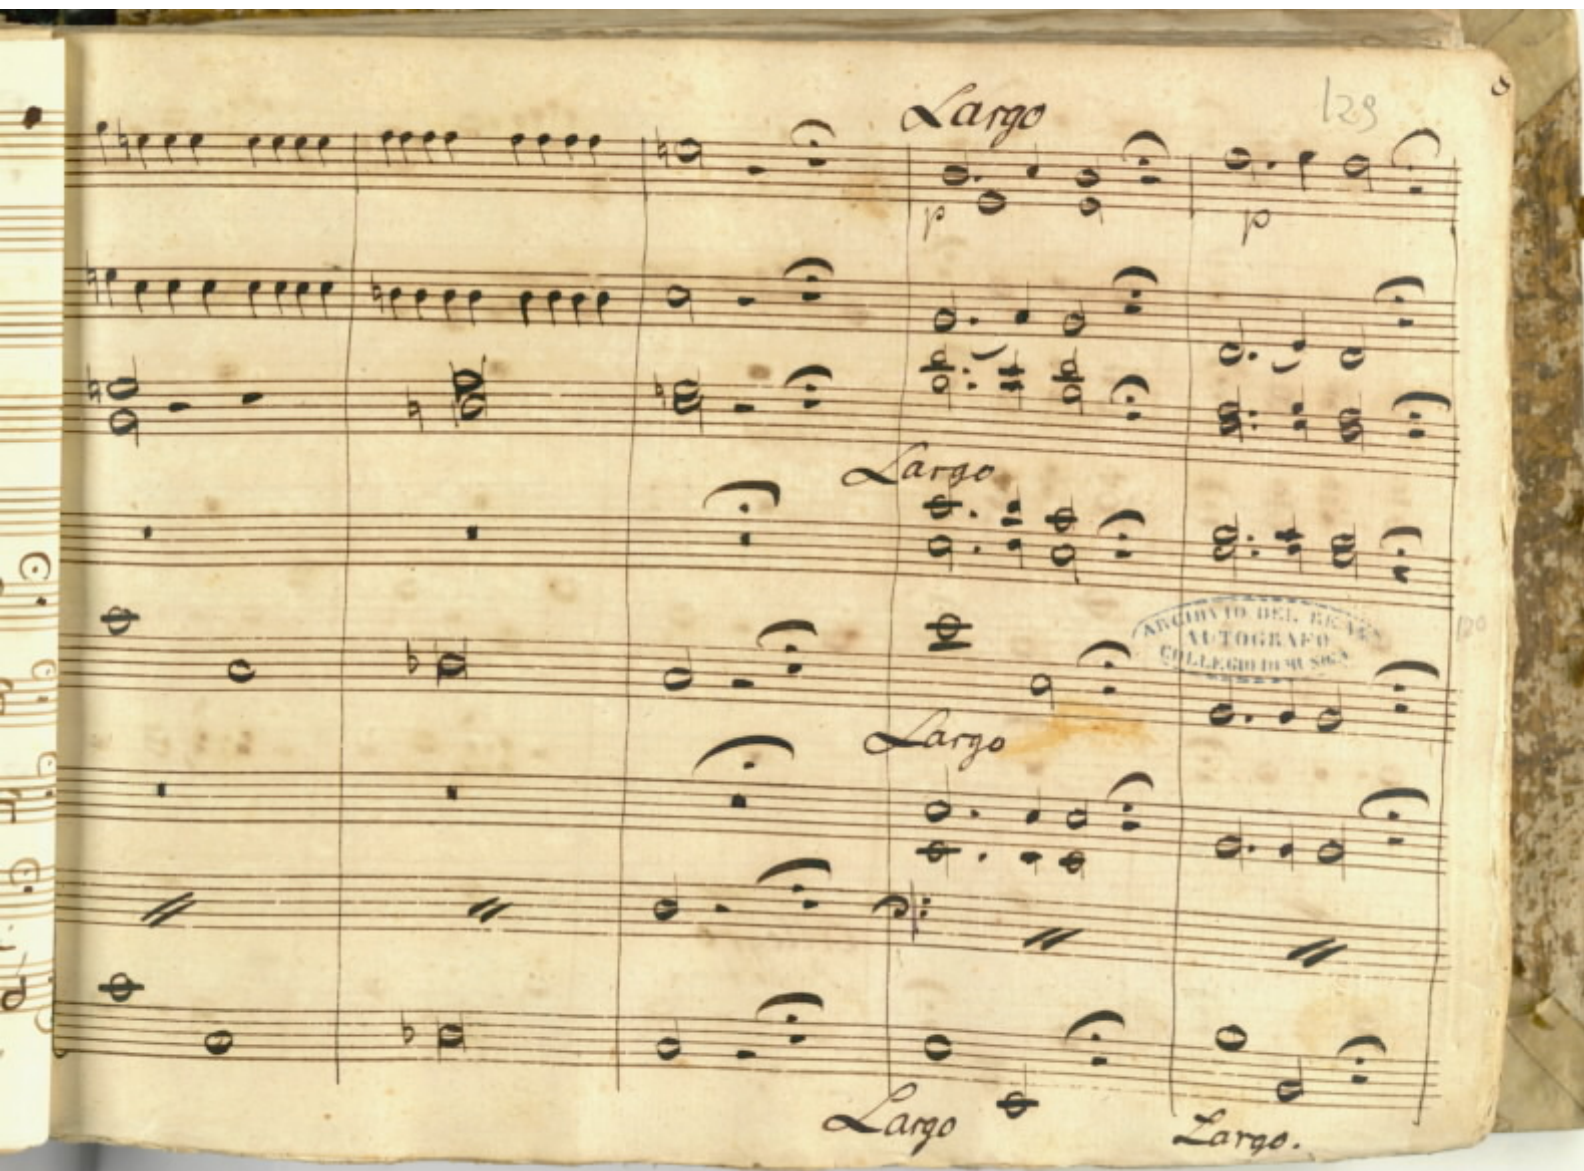 Largo
129
p
p
Largo
ARCHIVIO DEL REAL
AUTOGRAFO
COLLEGIO DI MUSICA
120
Largo
Largo
Largo.